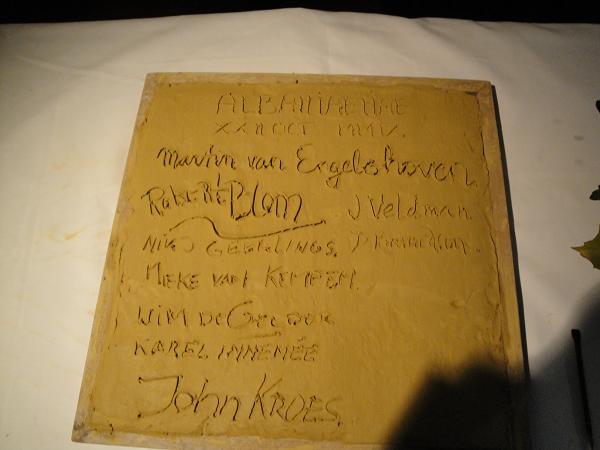 ALBANIANAE
XXII OCT MMIX.
Marijn van Engelshoven.
ROBERT Blom J Veldman.
NIKJ GEERLINGS.
MIEKE VAN KEMPEN.
WIM DE GELDER
KAREL INNEMÉE
John KROES.